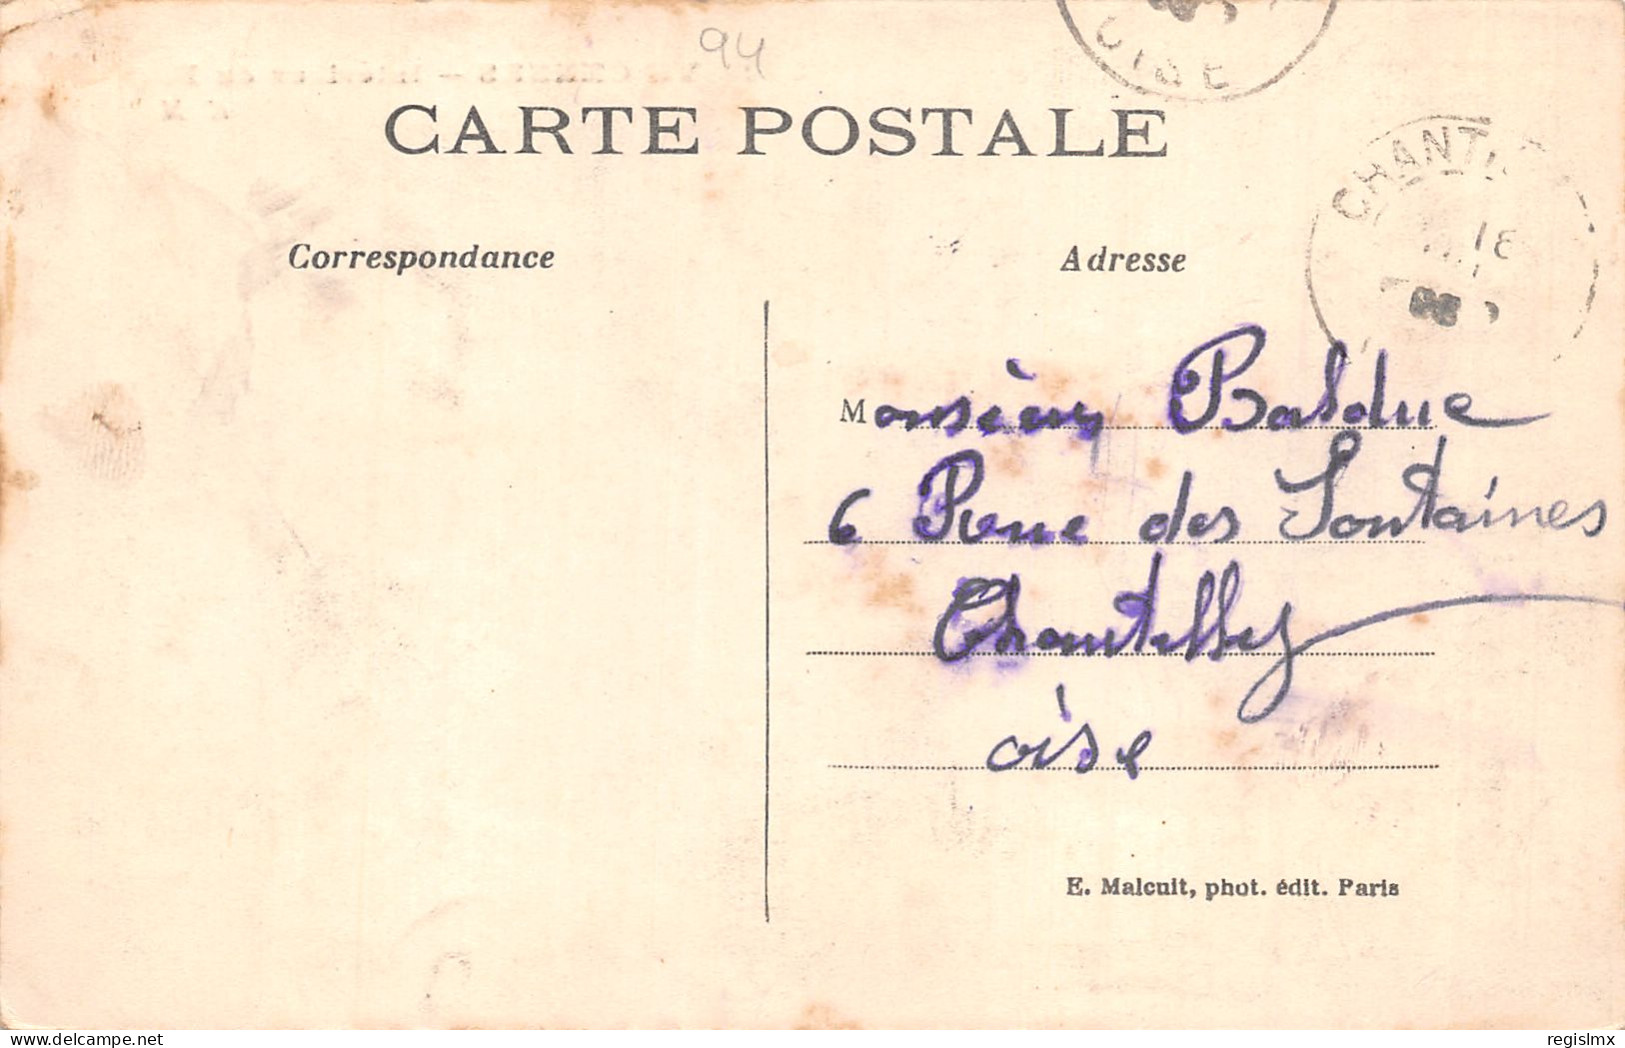 94
OISE
CARTE POSTALE
CHANTI
18
Correspondance
Adresse
Monsieur Balduc
6 Rue des Fontaines
Chantilly
oise
E. Malcuit, phot. édit. Paris
regislmx